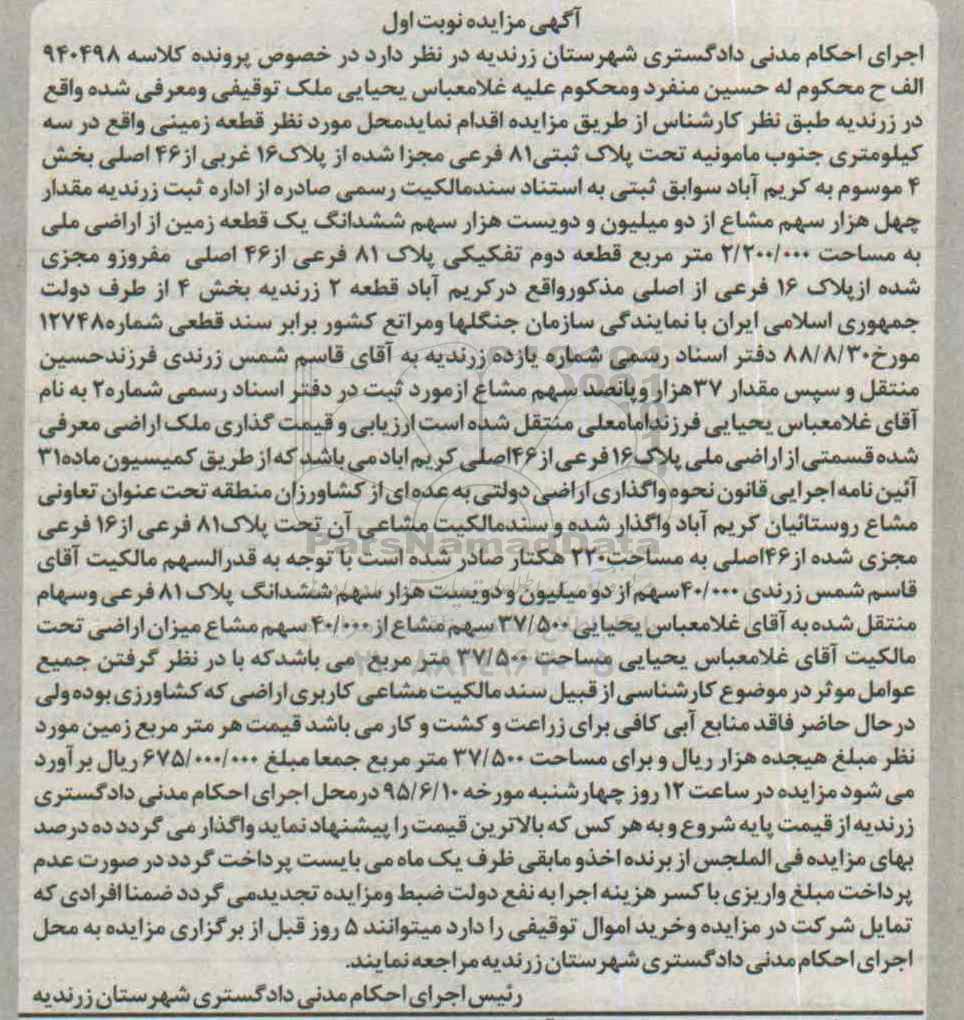 آگهی مزایده نوبت اول
اجرای احکام مدنی دادگستری شهرستان زرندیه در نظر دارد در خصوص پرونده کلاسه ۹۴۰۴۹۸
الف ح محکوم له حسین منفرد ومحکوم علیه غلامعباس یحیایی ملک توقیفی ومعرفی شده واقع
در زرندیه طبق نظر کارشناس از طریق مزایده اقدام نمایدمحل مورد نظر قطعه زمینی واقع در سه
کیلومتری جنوب مامونیه تحت پلاک ثبتی۸۱ فرعی مجزا شده از پلاک۱۶ غربی از۴۶ اصلی بخش
۴ موسوم به کریم آباد سوابق ثبتی به استناد سندمالکیت رسمی صادره از اداره ثبت زرندیه مقدار
چهل هزار سهم مشاع از دو میلیون و دویست هزار سهم ششدانگ یک قطعه زمین از اراضی ملی
به مساحت ۲/۲۰۰/۰۰۰ متر مربع قطعه دوم تفکیکی پلاک ۸۱ فرعی از۴۶ اصلی مفروزو مجزی
شده ازپلاک ۱۶ فرعی از اصلی مذکورواقع درکریم آباد قطعه ۲ زرندیه بخش ۴ از طرف دولت
جمهوری اسلامی ایران با نمایندگی سازمان جنگلها ومراتع کشور برابر سند قطعی شماره۱۲۷۴۸
مورخ۸۸/۸/۳۰ دفتر اسناد رسمی شماره یازده زرندیه به آقای قاسم شمس زرندی فرزندحسین
منتقل و سپس مقدار ۳۷هزار وپانصد سهم مشاع ازمورد ثبت در دفتر اسناد رسمی شماره۲ به نام
آقای غلامعباس یحیایی فرزندامامعلی منتقل شده است ارزیابی و قیمت گذاری ملک اراضی معرفی
شده قسمتی از اراضی ملی پلاک۱۶ فرعی از۴۶اصلی کریم اباد می باشد که از طریق کمیسیون ماده۳۱
آئین نامه اجرایی قانون نحوه واگذاری اراضی دولتی به عده ای از کشاورزان منطقه تحت عنوان تعاونی
مشاع روستائیان کریم آباد واگذار شده و سندمالکیت مشاعی آن تحت پلاک۸۱ فرعی از۱۶ فرعی
مجزی شده از۴۶اصلی به مساحت۲۲۰ هکتار صادر شده است با توجه به قدرالسهم مالکیت آقای
قاسم شمس زرندی ۴۰/۰۰۰سهم از دو میلیون و دویست هزار سهم ششدانگ پلاک ۸۱ فرعی وسهام
منتقل شده به آقای غلامعباس یحیایی ۳۷/۵۰۰ سهم مشاع از ۴۰/۰۰۰ سهم مشاع میزان اراضی تحت
مالکیت آقای غلامعباس یحیایی مساحت ۳۷/۵۰۰ متر مربع می باشدکه با در نظر گرفتن جمیع
عوامل موثر در موضوع کارشناسی از قبیل سند مالکیت مشاعی کاربری اراضی که کشاورزی بوده ولی
درحال حاضر فاقد منابع آبی کافی برای زراعت و کشت و کار می باشد قیمت هر متر مربع زمین مورد
نظر مبلغ هیجده هزار ریال و برای مساحت ۳۷/۵۰۰ متر مربع جمعا مبلغ ۶۷۵/۰۰۰/۰۰۰ ریال برآورد
می شود مزایده در ساعت ۱۲ روز چهارشنبه مورخه ۹۵/۶/۱۰ درمحل اجرای احکام مدنی دادگستری
زرندیه از قیمت پایه شروع و به هر کس که بالاترین قیمت را پیشنهاد نماید واگذار می گردد ده درصد
بهای مزایده فی الملجس از برنده اخذو مابقی ظرف یک ماه می بایست پرداخت گردد در صورت عدم
پرداخت مبلغ واریزی با کسر هزینه اجرا به نفع دولت ضبط ومزایده تجدیدمی گردد ضمنا افرادی که
تمایل شرکت در مزایده وخرید اموال توقیفی را دارد میتوانند ۵ روز قبل از برگزاری مزایده به محل
اجرای احکام مدنی دادگستری شهرستان زرندیه مراجعه نمایند.
رئیس اجرای احکام مدنی دادگستری شهرستان زرندیه
ParsNamadData